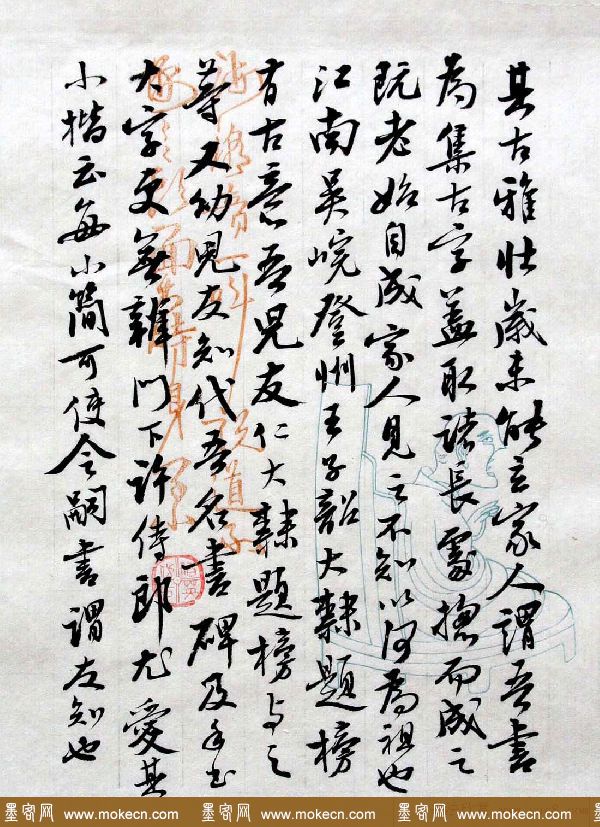 其古雅壮歲未能立家人謂吾書
為集古字盖取諸長處揔而成之
既老始自成家人見之不知以何為祖也
江南吴皖登州王子韶大隸題榜
有古意吾児友仁大隸題榜与之
等又幼児友知代吾名書碑及手書
大字更無辨門下許侍郎尤愛其
小楷云每小簡可使令嗣書謂友知也
墨客网 www.mokecn.com 墨客网 www.mokecn.com 墨客网 www.mokecn.com